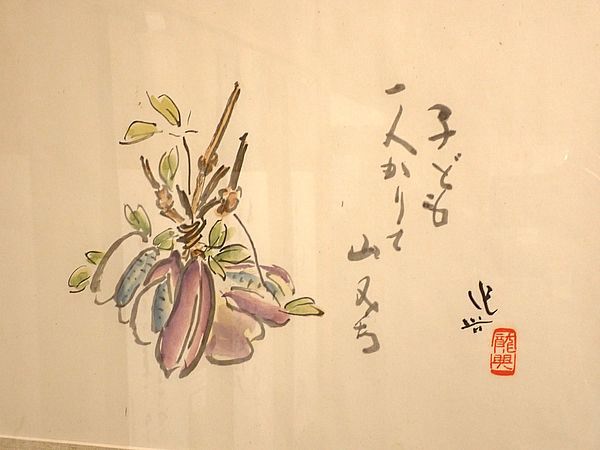 子ども
一人かりて
山みち
龍興